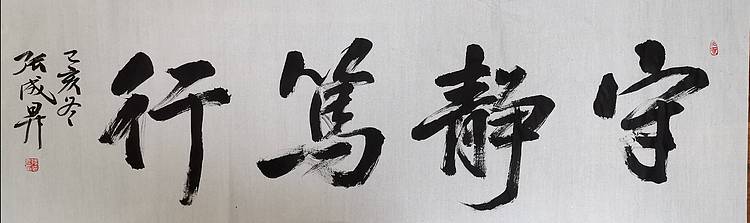 守静笃行
己亥冬
张成昇